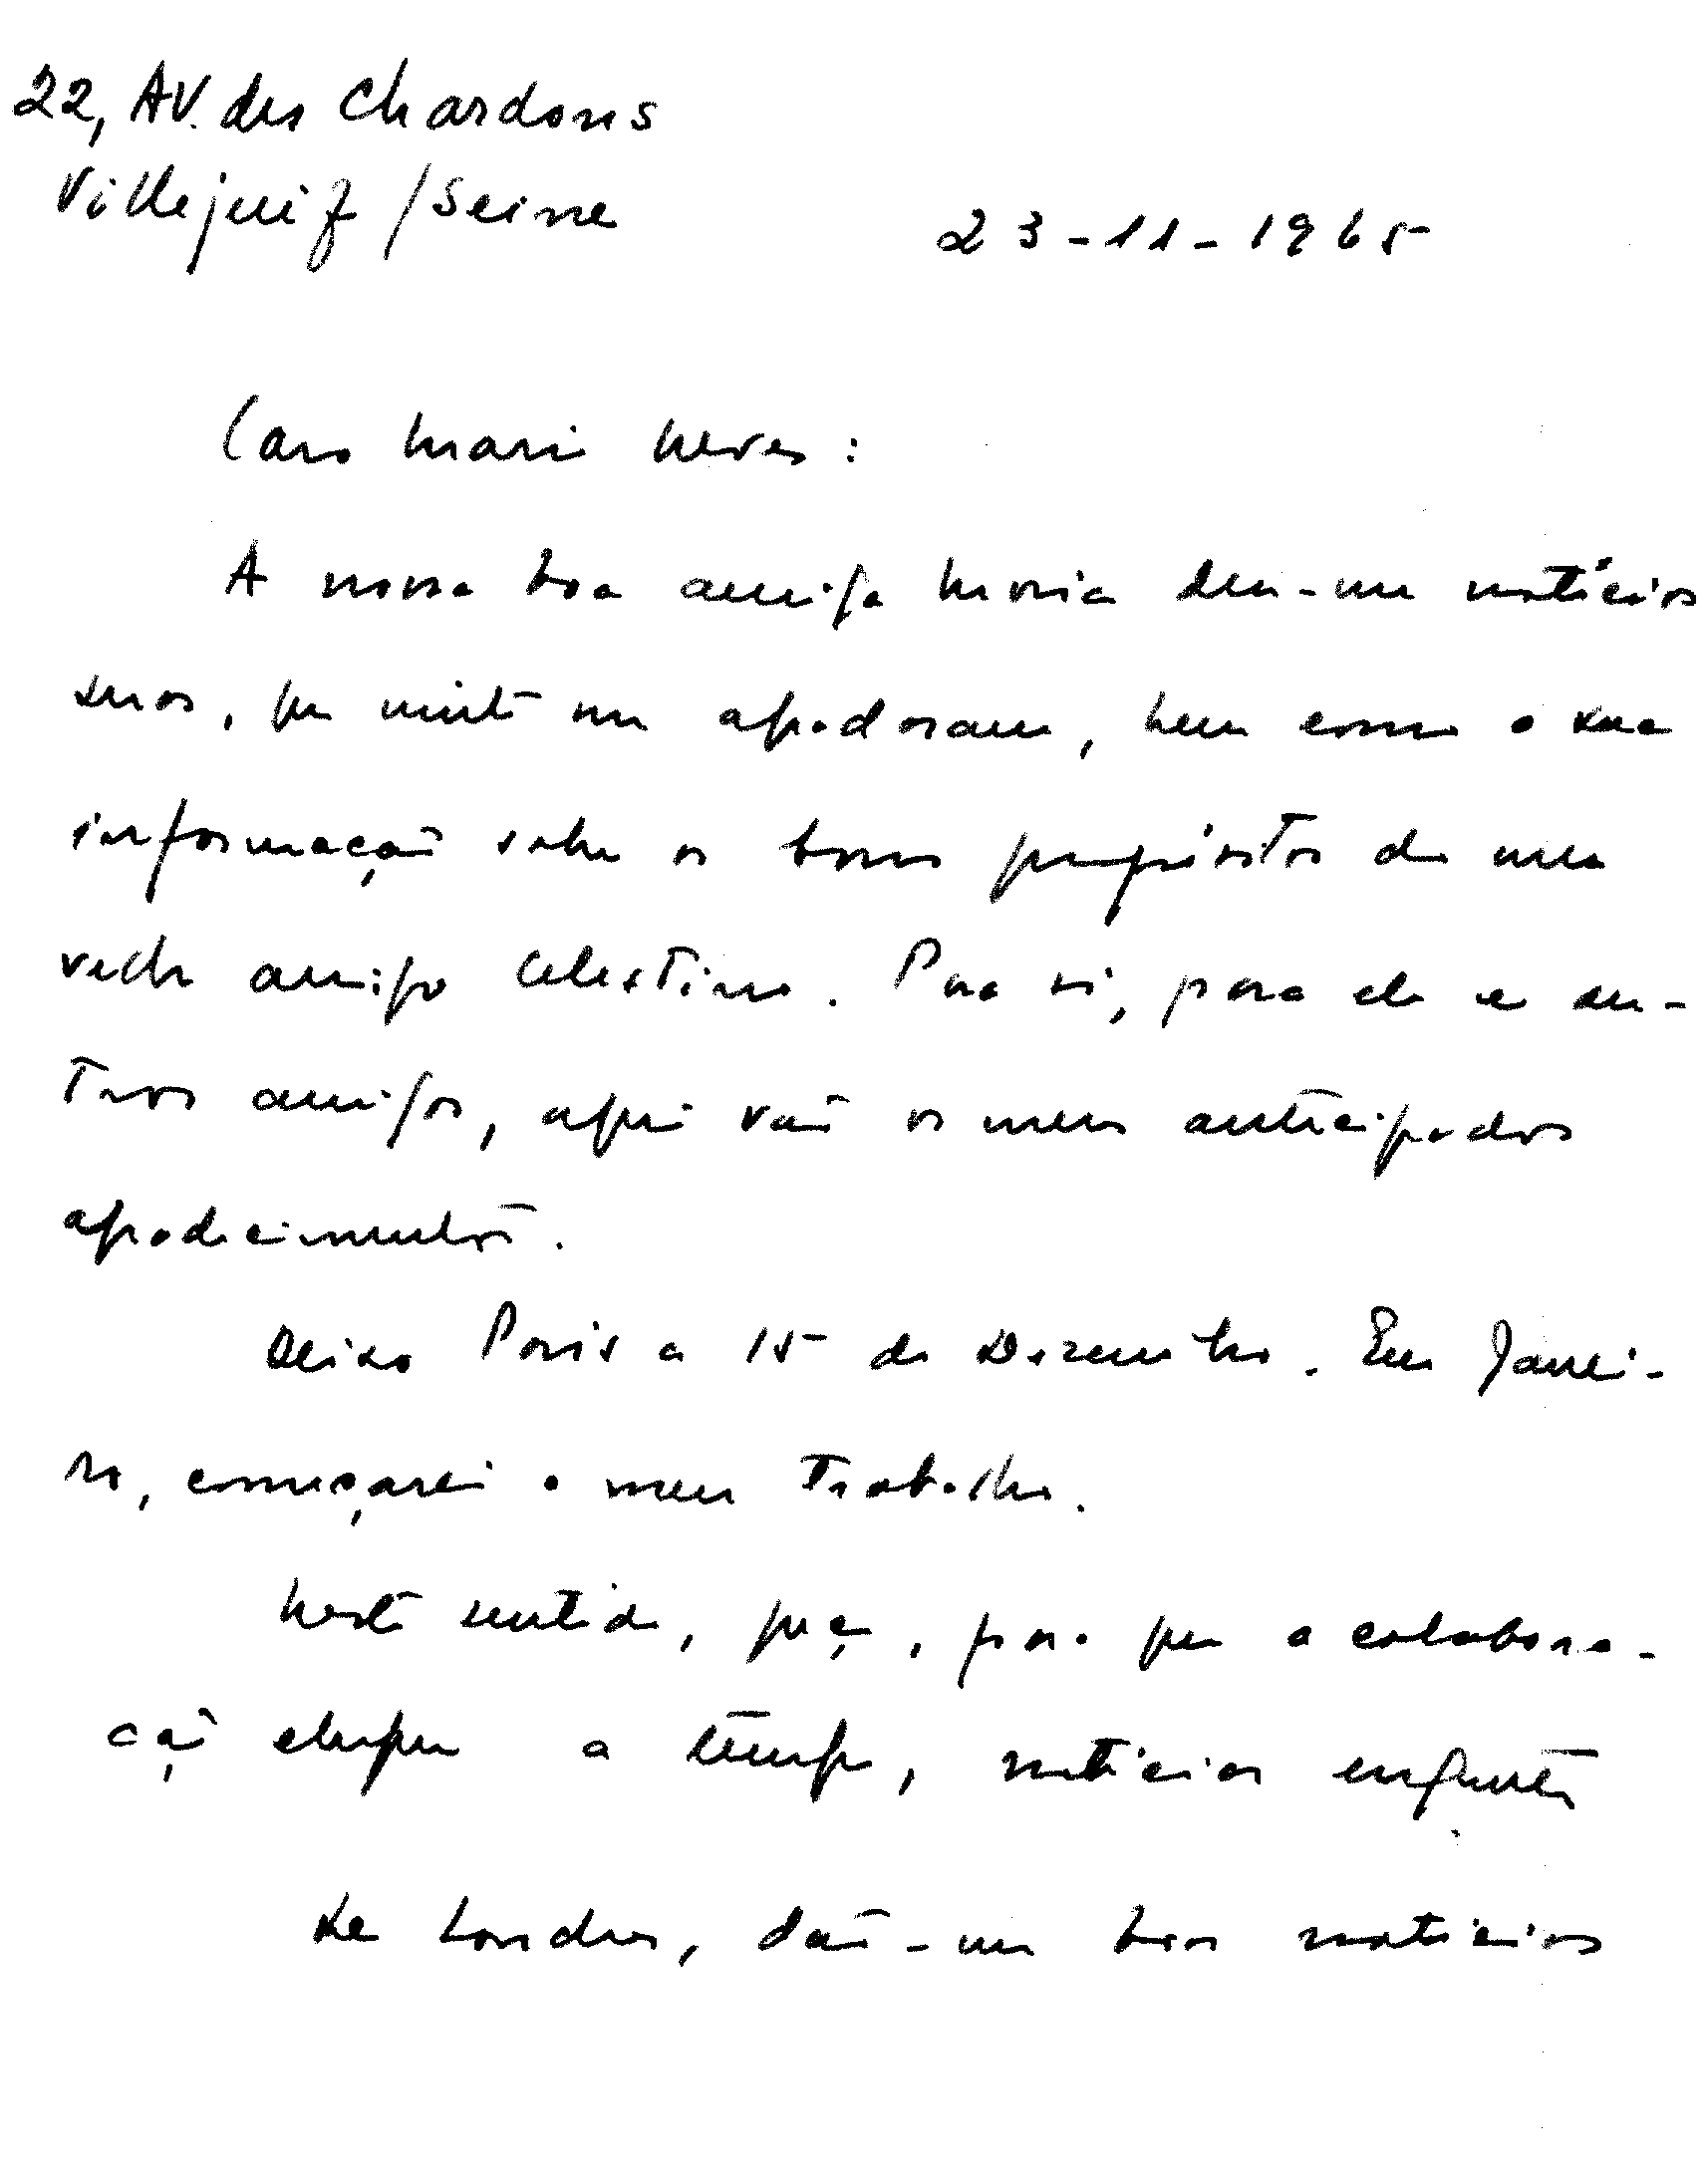 22, Av. des Chardons
Villejuif / Seine
23-11-1965
Caro Mario Neves:
A nossa boa amiga Maria deu-me notícias
suas, que muito me agradaram, bem como a sua
informação sobre os bons propósitos do meu
velho amigo Celestino. Para si, para ele e ou-
tros amigos, aqui vão os meus antecipados
agradecimentos.
Deixo Paris a 15 de Dezembro. Em Janei-
ro, começarei o meu trabalho.
Neste sentido, peço, para que a colabora-
ção chegue a tempo, notícias urgentes
De Londres, dão-me boas notícias